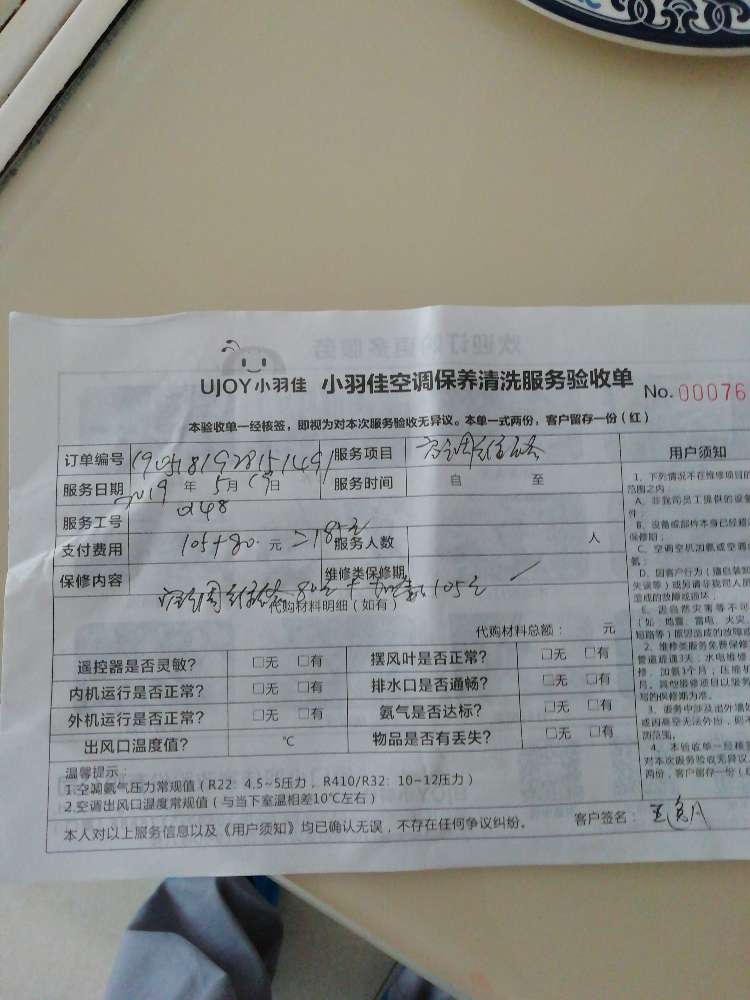 UJOY小羽佳 小羽佳空调保养清洗服务验收单 No. 00076
本验收单一经核签，即视为对本次服务验收无异议。本单一式两份，客户留存一份（红）
订单编号 服务项目 空调维修
服务日期 2019 年 5月19日 服务时间 自 至
服务工号 0148
支付费用 105+80 元 =185元 服务人数 人
保修内容 维修类保修期
空调维修80元+加氟105元
代购材料明细（如有）
代购材料总额： 元
遥控器是否灵敏？ □无 □有 摆风叶是否正常？ □无 □有
内机运行是否正常？ □无 □有 排水口是否通畅？ □无 □有
外机运行是否正常？ □无 □有 氨气是否达标？ □无 □有
出风口温度值？ ℃ 物品是否有丢失？ □无 □有
温馨提示：
1.空调氨气压力常规值（R22：4.5~5压力，R410/R32：10-12压力）
2.空调出风口温度常规值（与当下室温相差10℃左右）
本人对以上服务信息以及《用户须知》均已确认无误，不存在任何争议纠纷。 客户签名：
用户须知
1、下列情况不在维修项目的
范围之内：
A、非我司员工提供的设备
件；
B、设备或部件本身已经超过
保修期；
C、空调空机加氨或空调
氨；
D、因客户行为（擅自装卸
失误等）或另请非我司人员
造成的故障或损坏；
E、因自然灾害等不可
（如：地震、雷电、火灾、
短路等）原因造成的故障或
2、维修类服务免费保修
管道疏通3天；水电维修